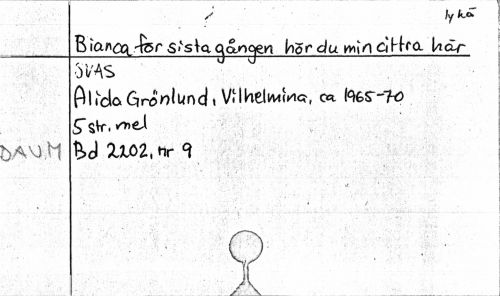 lykå
Bianca för sista gången hör du min cittra här
SVAS
Alida Grönlund, Vilhelmina, ca 1965-70
5 str. mel
DAUM Bd 2202, nr 9